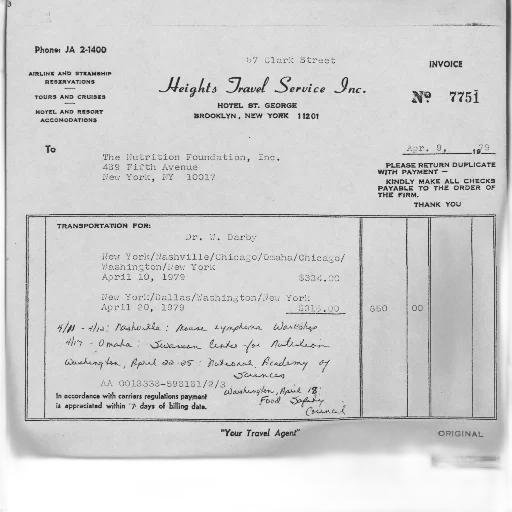 Phone: JA 2-1400
57 Clark Street
INVOICE
AIRLINE AND STEAMSHIP
RESERVATIONS
TOURS AND CRUISES
HOTEL AND RESORT
ACCOMODATIONS
Heights Travel Service Inc.
HOTEL ST. GEORGE
BROOKLYN, NEW YORK 11201
Nº 7751
To
Apr. 9, 1979
The Nutrition Foundation, Inc.
489 Fifth Avenue
New York, NY 10017
PLEASE RETURN DUPLICATE
WITH PAYMENT —
KINDLY MAKE ALL CHECKS
PAYABLE TO THE ORDER OF
THE FIRM.
THANK YOU
TRANSPORTATION FOR:
Dr. W. Darby
New York/Nashville/Chicago/Omaha/Chicago/
Washington/New York
April 10, 1979 $334.00
New York/Dallas/Washington/New York
April 20, 1979 $316.00 650 00
4/11 - 4/12: Nashville: Mouse Lymphoma Workshop
4/17 - Omaha: Swanson Center for Nutrition
Washington, April 22-25: National Academy of
Sciences
AA 0018338-598181/2/3
Washington, April 18
Food Safety
Council
In accordance with carriers regulations payment
is appreciated within 7 days of billing date.
"Your Travel Agent"
ORIGINAL